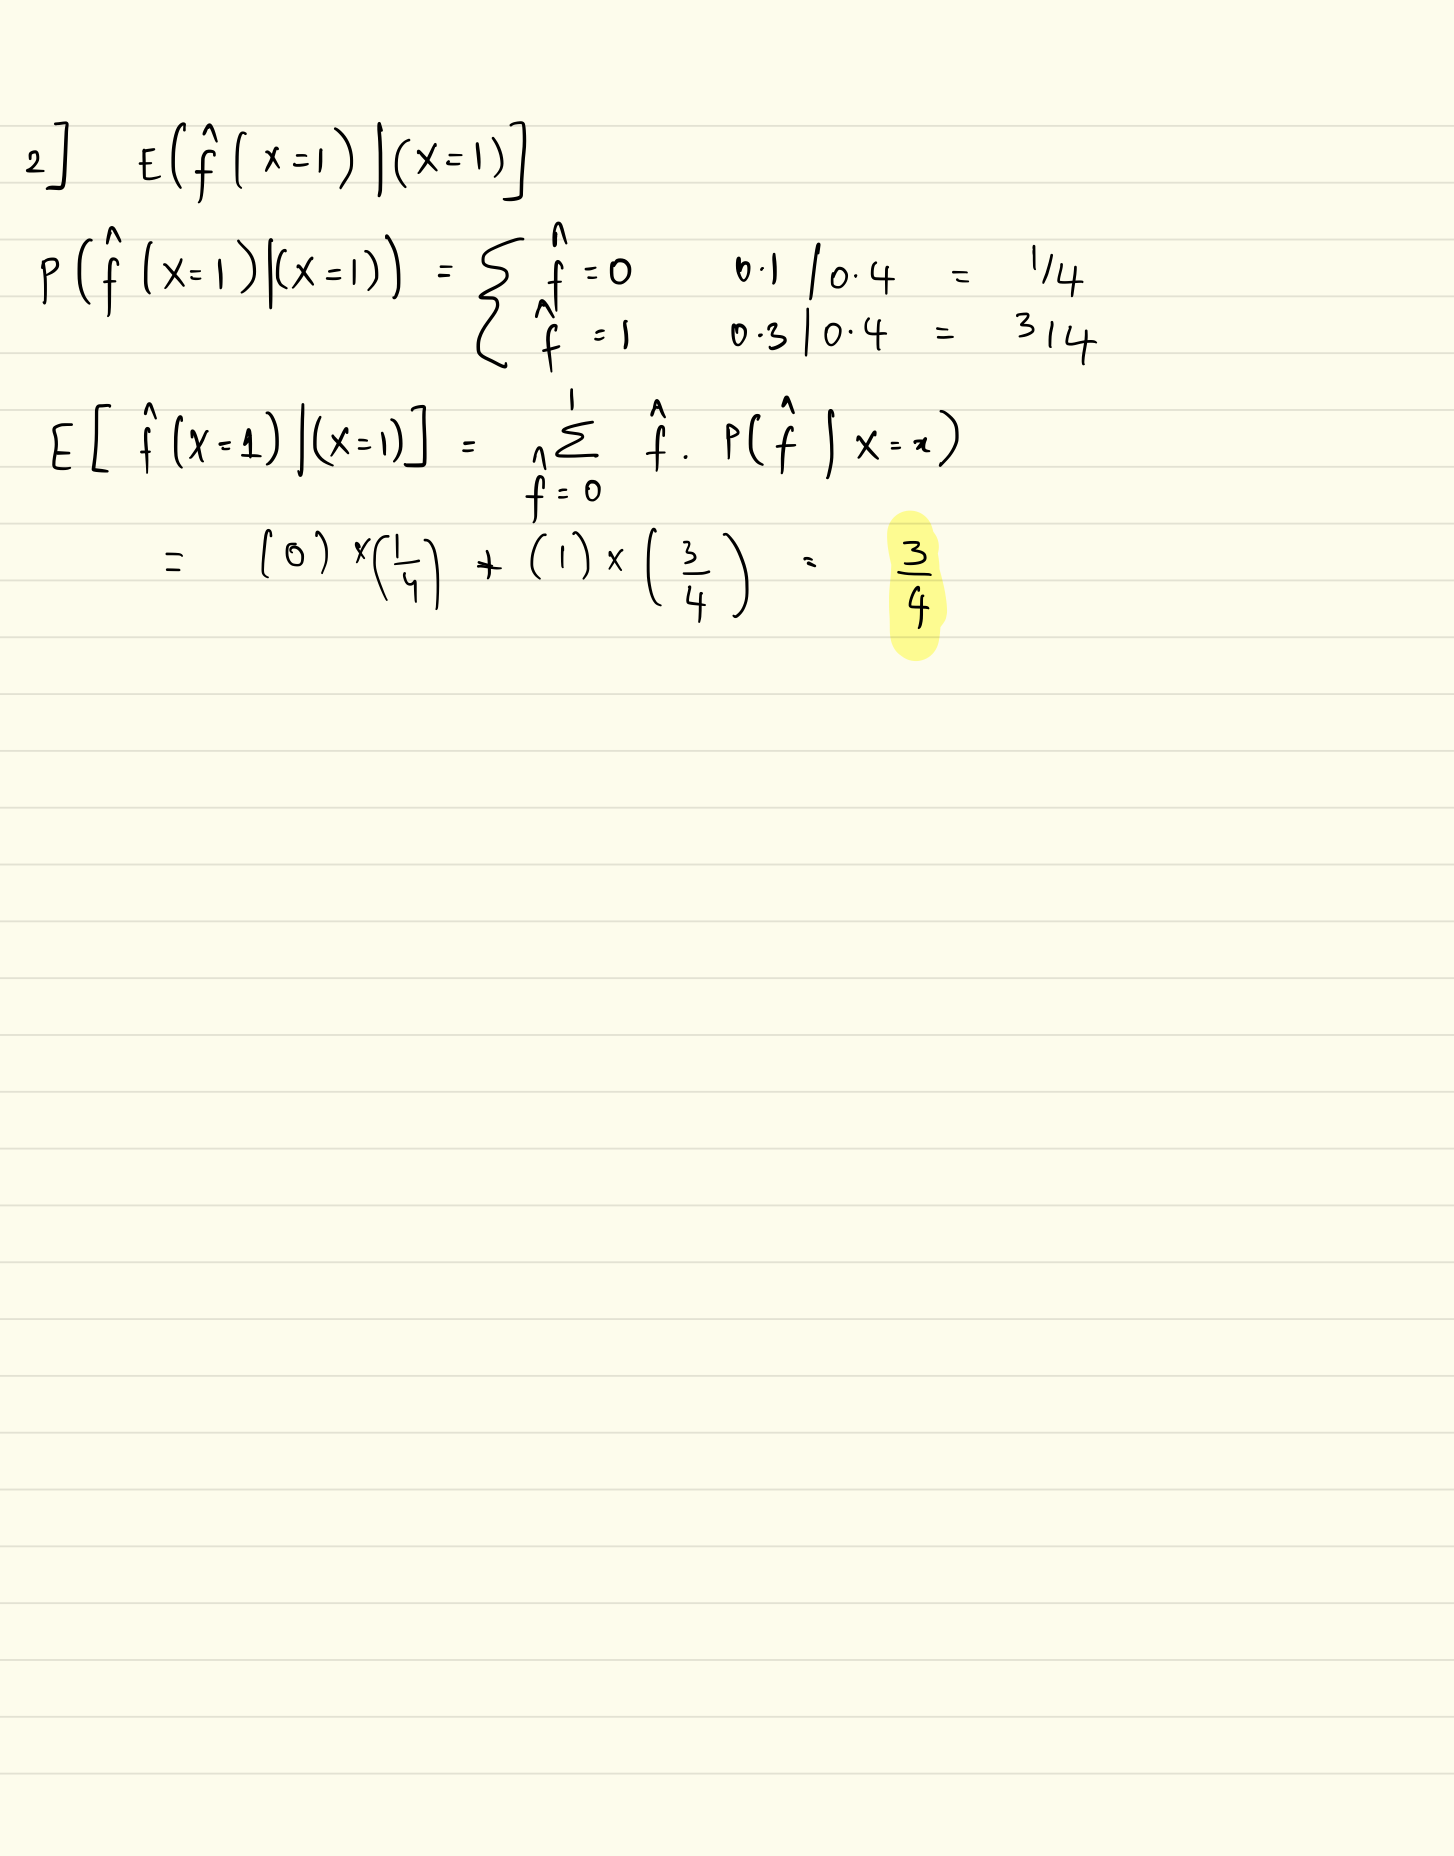 2] E(f̂(x=1)|(x=1)]
P(f̂(x=1)|(x=1)) = { f̂=0 0.1/0.4 = 1/4
f̂=1 0.3|0.4 = 3/4
E[f̂(x=1)|(x=1)] = 1 Σ f̂=0 f̂. P(f̂|x=x)
= (0)×(1/4) + (1)×(3/4) = 3/4